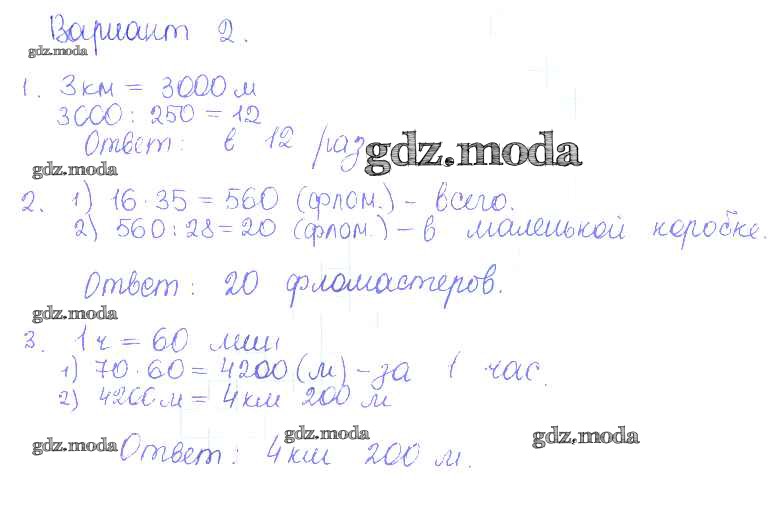 Вариант 2.
gdz.moda
1. 3 км = 3000 м
3000 : 250 = 12
Ответ: в 12 раз
gdz.moda
gdz.moda
2. 1) 16 · 35 = 560 (флом.) – всего.
2) 560 : 28 = 20 (флом.) – в маленькой коробке.
Ответ: 20 фломастеров.
gdz.moda
3. 1 ч = 60 мин
1) 70 · 60 = 4200 (м) – за 1 час.
2) 4200 м = 4 км 200 м
gdz.moda
gdz.moda
gdz.moda
Ответ: 4 км 200 м.